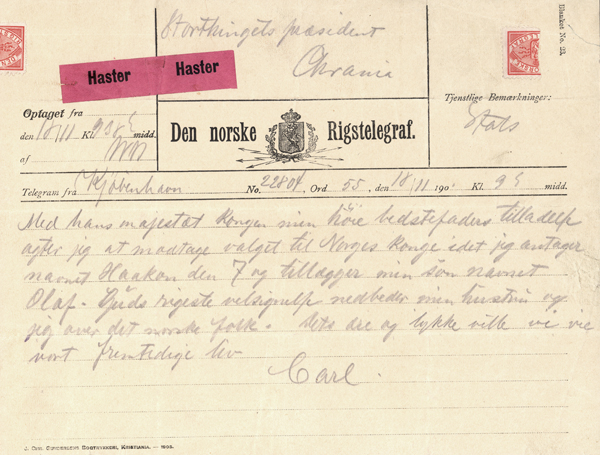 Storthingets præsident
Chrania
Haster Haster
Blanket No. 23.
Optaget fra
den 18/11 Kl. midd.
af
Tjenstlige Bemærkninger:
Stats
Den norske Rigstelegraf.
Telegram fra Kjøbenhavn No. 22804, Ord 55, den 18/11 190 Kl. 9 midd.
Med hans majestæt kongen min høie bedstefaders tilladelse
agter jeg at modtage valget til Norges konge idet jeg antager
navnet Haakon den 7 og tillægger min søn navnet
Olaf. Guds rigeste velsignelse nedbeder min hustru og
jeg over det norske folk. Dets ære og lykke ville vi vie
vort fremtidige liv
Carl.